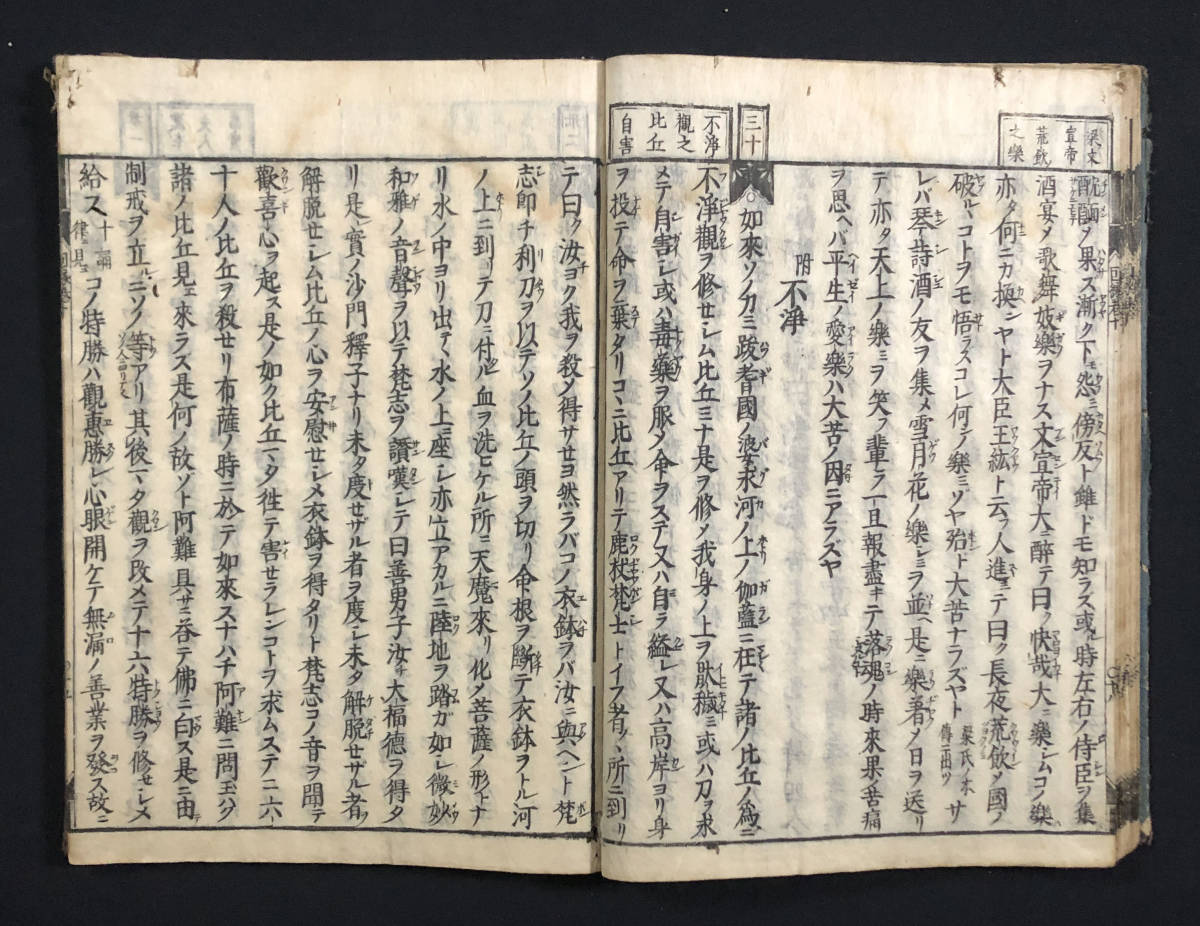 梁文
宣帝
荒飲
之樂
酖酒ノ果ス漸ク下ニ怨ミ傍反ト雖ドモ知ラズ或ル時左右ノ侍臣ヲ集
酒宴メ歌舞妓樂ヲナス文宣帝大ニ醉テ曰ク快哉大ニ樂シムコノ樂
亦タ何ニカ ンヤト大臣王紘ト云フ人進ミテ曰ク長夜荒飲メ國ノ
破ルヽコトヲモ悟ラスコレ何テ樂ミゾヤ殆ト大苦ナラズヤト サ
レバ琴詩酒ノ友ヲ集メ雪月花ノ樂シミヲ並ヘ是ニ樂著メ日ヲ送リ
テ亦タ天上ノ樂ミヲ笑フ輩ラ一旦報盡キテ落魂ノ時來果苦痛
ヲ思ヘバ平生ノ愛樂ハ大苦ノ因ニアラズヤ
附 不淨
三十
不淨
觀之
比丘
自害
如來ソノカミ跋耆國ノ婆求河ノ上ノ伽藍ニ在テ諸ノ比丘ノ爲ニ
不淨觀ヲ修セシム比丘ミナ是ヲ修メ我身ノ上ヲ厭穢ミ或ハ刀ヲ求
メテ自害シ或ハ毒藥ヲ服メ命ヲステ又ハ自ラ縊レ又ハ高岸ヨリ身
ヲ投テ命ヲ棄タリコヽニ比丘アリテ鹿杖梵士トイフ者ノ所ニ到リ
テ曰ク汝ヨク我ヲ殺メ得サセヨ然ラバコノ衣鉢ヲバ汝ニ與ヘント梵
志即チ利刀ヲ以テソノ比丘ノ頭ヲ切リ命根ヲ斷テ衣鉢ヲトル河
ノ上ニ到リテ刀ニ付ル血ヲ洗ヒケル所ニ天魔來リ化メ菩薩ノ形トナ
リ水ノ中ヨリ出テヽ水ノ上ニ座シ亦立アカルニ陸地ヲ踏ガ如シ微妙
和雅ノ音聲ヲ以テ梵志ヲ讚嘆シテ曰善男子汝チ大福徳ヲ得タ
リ是レ實ノ沙門釋子ナリ未タ度セザル者ヲ度シ未タ解脱セザル者ヲ
解脱セシム比丘ノ心ヲ安慰セシメ衣鉢ヲ得タリト梵志コノ音ヲ聞テ
歡喜心ヲ起ス是ノ如ク比丘マタ徃テ害セラレンコトヲ求ムステニ六
十人ノ比丘ヲ殺セリ布薩ノ時ニ於テ如來スナハチ阿難ニ問玉ハク
諸ノ比丘見エ來ラス是何ノ故ソト阿難具サニ呑テ佛ニ白ス是ニ由テ
制戒ヲ立ルニソノ等アリ其後マタ觀ヲ改メテ十六特勝ヲ修セシメ
給ス 十誦律ニ見ユ コノ特勝ハ觀惠勝レ心眼開ケテ無漏ノ善業ヲ發ス故ニ